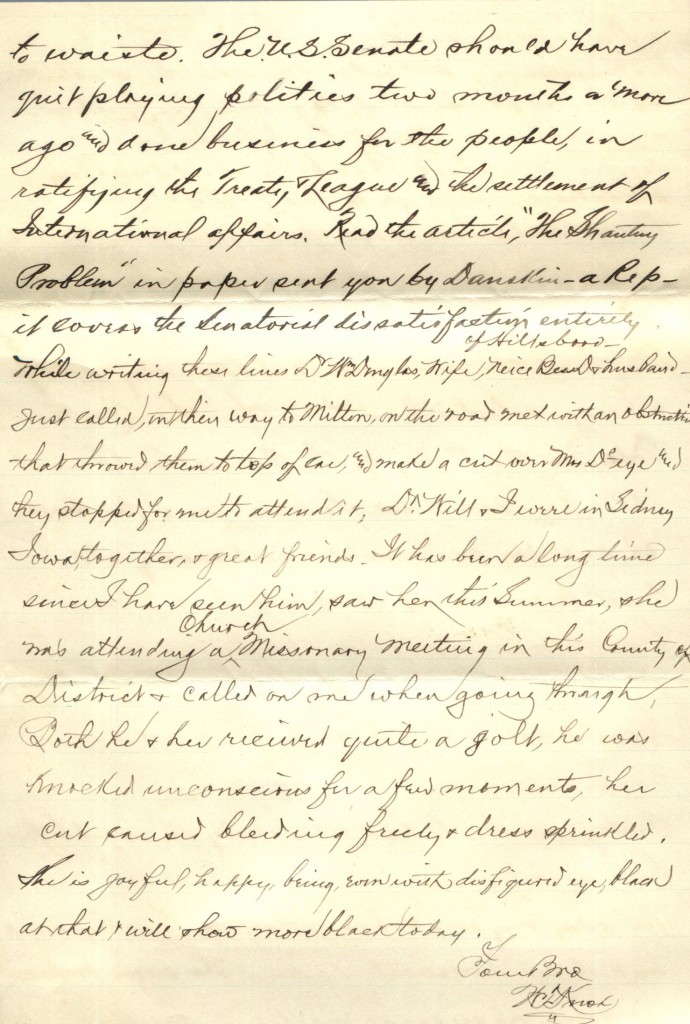 to waiste. The U.S. Senate should have
quit playing politics two months or more
ago and done business for the people, in
ratifying the Treaty, & League and the settlement of
International affairs. Read the article, "The Shantung
Problem" in paper sent you by Danskin - a Rep -
it covers the Senatorial dissatisfaction entirely.
of Hillsboro -
While writing these lines Dr Wm Douglas, Wife, Neice Bess D & husband -
Just called, on their way to Milton, on the road met with an obstruction
that throwed them to top of car, and make a cut over Mrs Ds eye and
they stopped for me to attend it, Dr. Will & I were in Sidney
Iowa, together, & great friends. It has been a long time
since I have seen him, saw her this Summer, she
Church
was attending a Missonary Meeting in this County or
District & called on me when going through,
Both he & her recieved quite a jolt, he was
knocked unconscious for a few moments, her
cut caused bleeding freely & dress sprinkled.
She is joyful, happy, being, even with disfigured eye, black
at that & will show more black today.
Your Bro
Knox